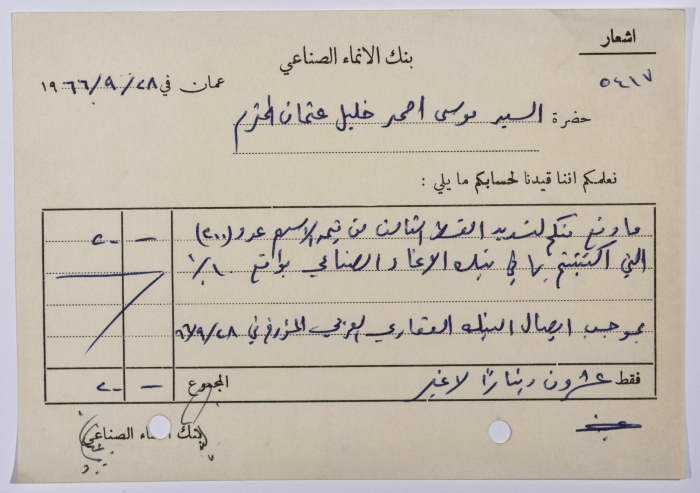 اشعار
بنك الانماء الصناعي
٥٤١٧
عمان في ٢٨/٩/١٩٦٦
حضرة السيد موسى احمد خليل عثمان المحترم
نعلمكم اننا قيدنا لحسابكم ما يلي :
ما دفع منكم لتسديد القسط الثالث من قيمة الاسهم عدد (٢٠٠) — ٢٠
التي اكتتبتم بها في بنك الانماء الصناعي بواقع ١٠٪
بموجب ايصال البنك العقاري العربي المؤرخ في ٢٨/٩/٦٦
فقط عشرون دينارًا لا غير المجموع — ٢٠
بنك الانماء الصناعي